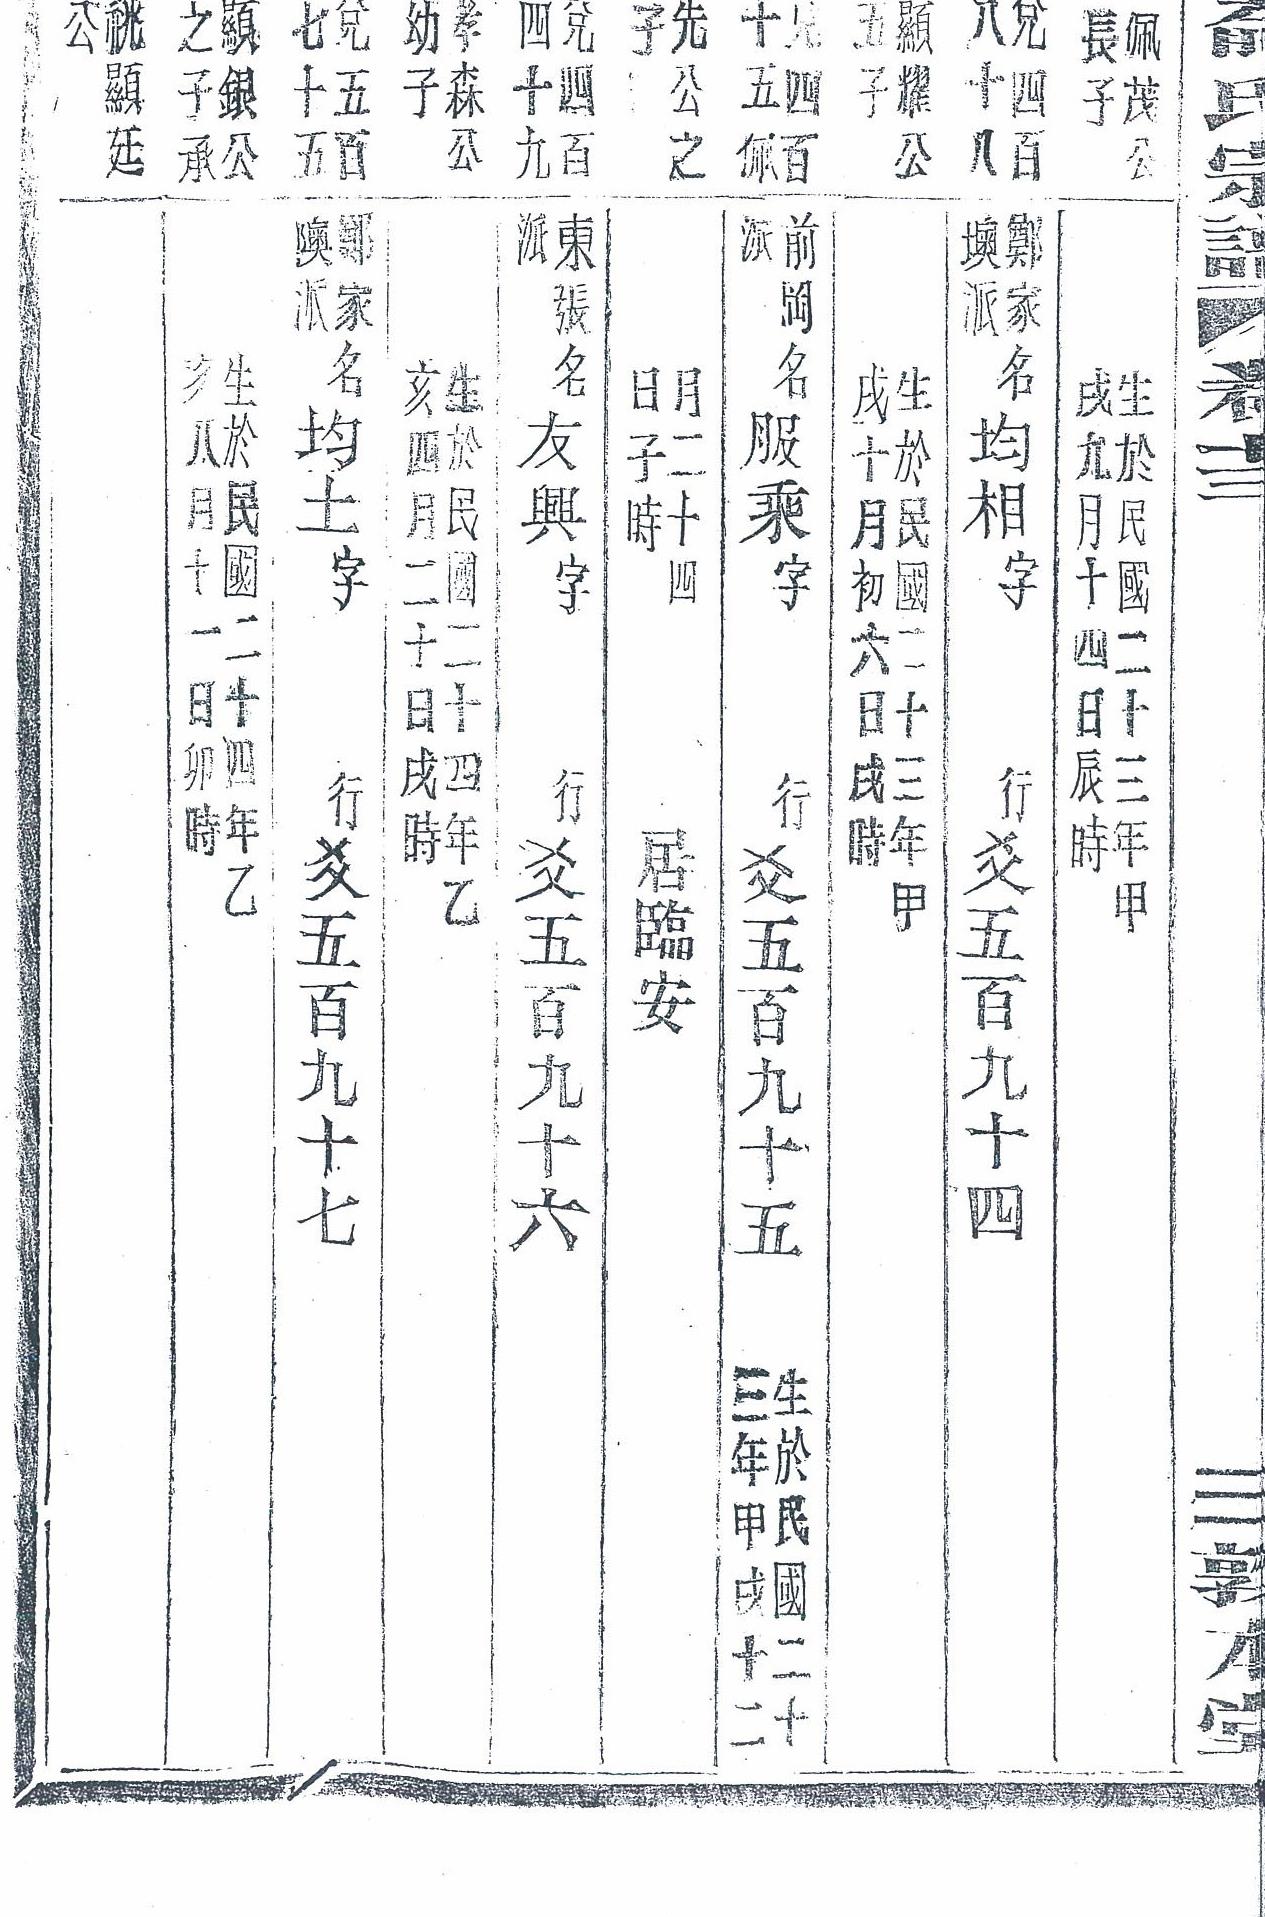 氏宗譜 卷三 三 敦本堂
佩茂公
長子
生於民國二十三年甲
戌九月十四日辰時
兌四百
八十八
鄭家
墺派
名均相字 行爻五百九十四
顯耀公
五子
生於民國二十三年甲
戌十月初六日戌時
兌四百
十五佩
前岡
派
名服乘字 行爻五百九十五
生於民國二十
三年甲戌十二
先公之
子
月二十四
日子時
居臨安
兌四百
四十九
東張
派
名友興字 行爻五百九十六
孝森公
幼子
生於民國二十四年乙
亥四月二十日戌時
兌五百
七十五
鄭家
墺派
名均土字 行爻五百九十七
顯銀公
之子承
生於民國二十四年乙
亥八月十一日卯時
祧顯廷
公